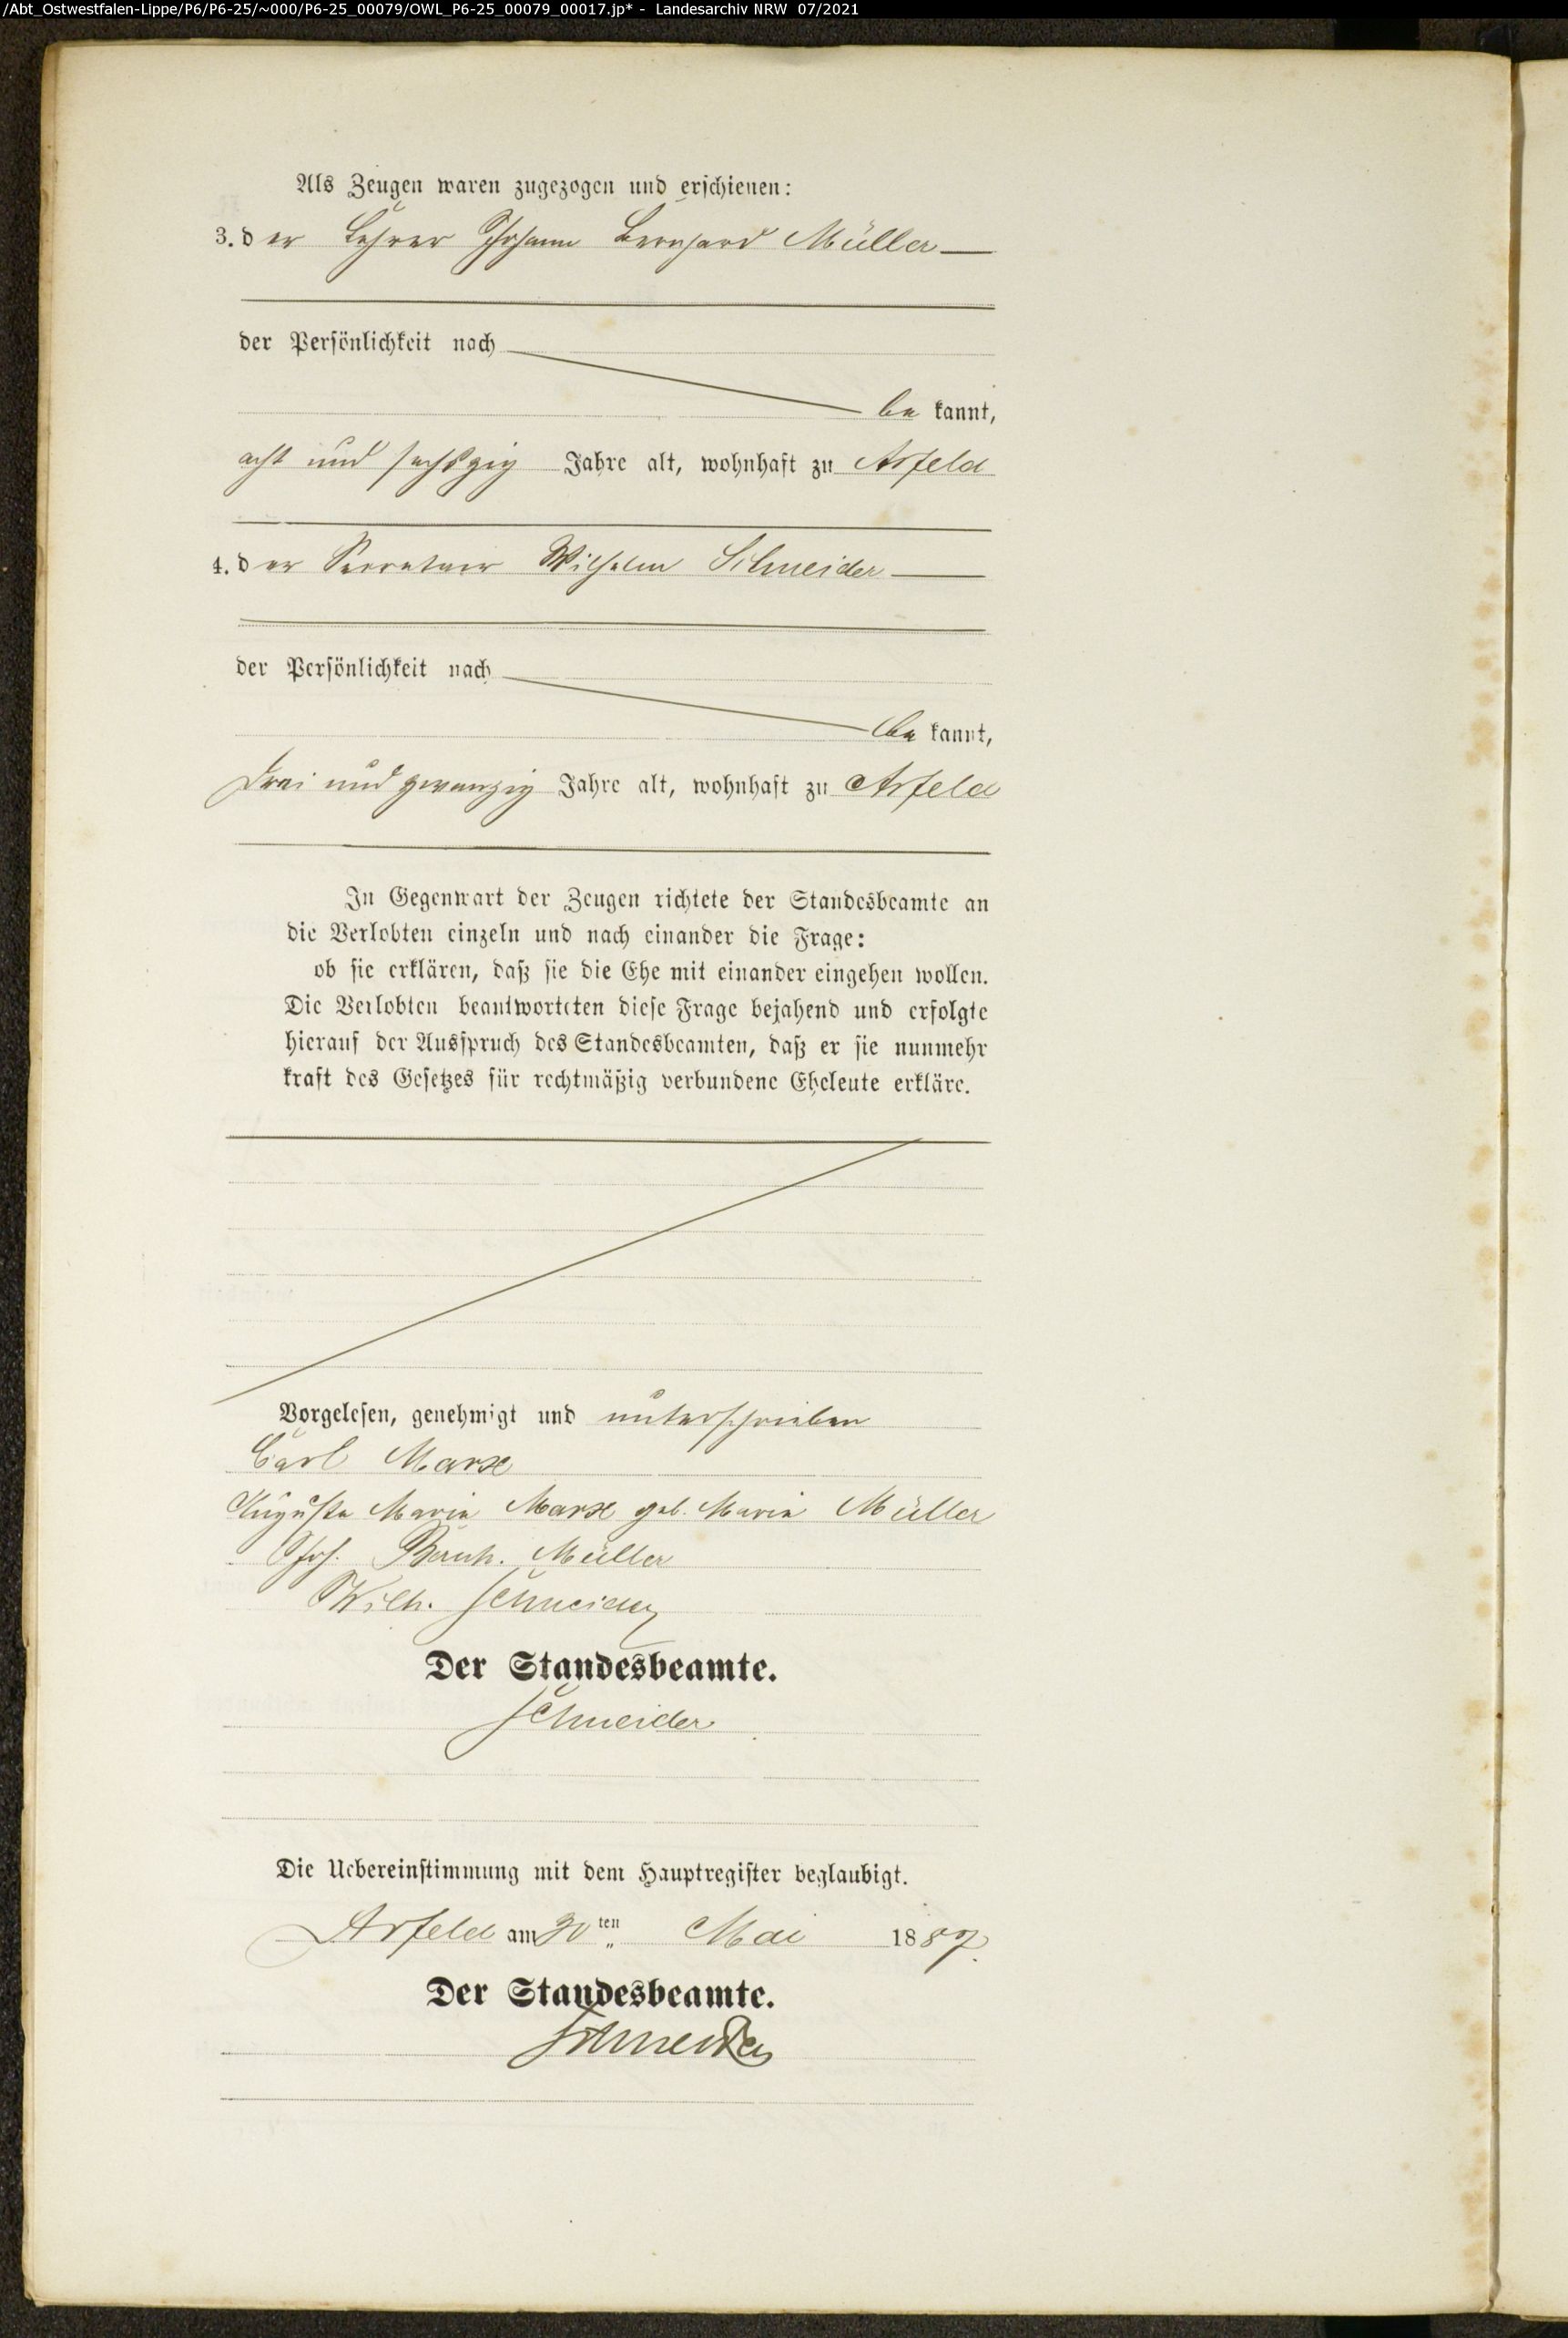 /Abt_Ostwestfalen-Lippe/P6/P6-25/~000/P6-25_00079/OWL_P6-25_00079_00017.jp* - Landesarchiv NRW 07/2021
Als Zeugen waren zugezogen und erschienen:
3. der Lehrer Johann Bernhard Müller
der Persönlichkeit nach
bekannt,
acht und sechszig Jahre alt, wohnhaft zu Arfeld
4. der Secretair Wilhelm Schneider
der Persönlichkeit nach
bekannt,
drei und zwanzig Jahre alt, wohnhaft zu Arfeld
In Gegenwart der Zeugen richtete der Standesbeamte an
die Verlobten einzeln und nach einander die Frage:
ob sie erklären, daß sie die Ehe mit einander eingehen wollen.
Die Verlobten beantworteten diese Frage bejahend und erfolgte
hierauf der Ausspruch des Standesbeamten, daß er sie nunmehr
kraft des Gesetzes für rechtmäßig verbundene Eheleute erkläre.
Vorgelesen, genehmigt und unterschrieben
Carl Marx
Auguste Marie Marx geb. Marie Müller
Joh. Bernh. Müller
Wilh. Schneider
Der Standesbeamte.
Schneider
Die Uebereinstimmung mit dem Hauptregister beglaubigt.
Arfeld am 30ten Mai 1887.
Der Standesbeamte.
Schneider